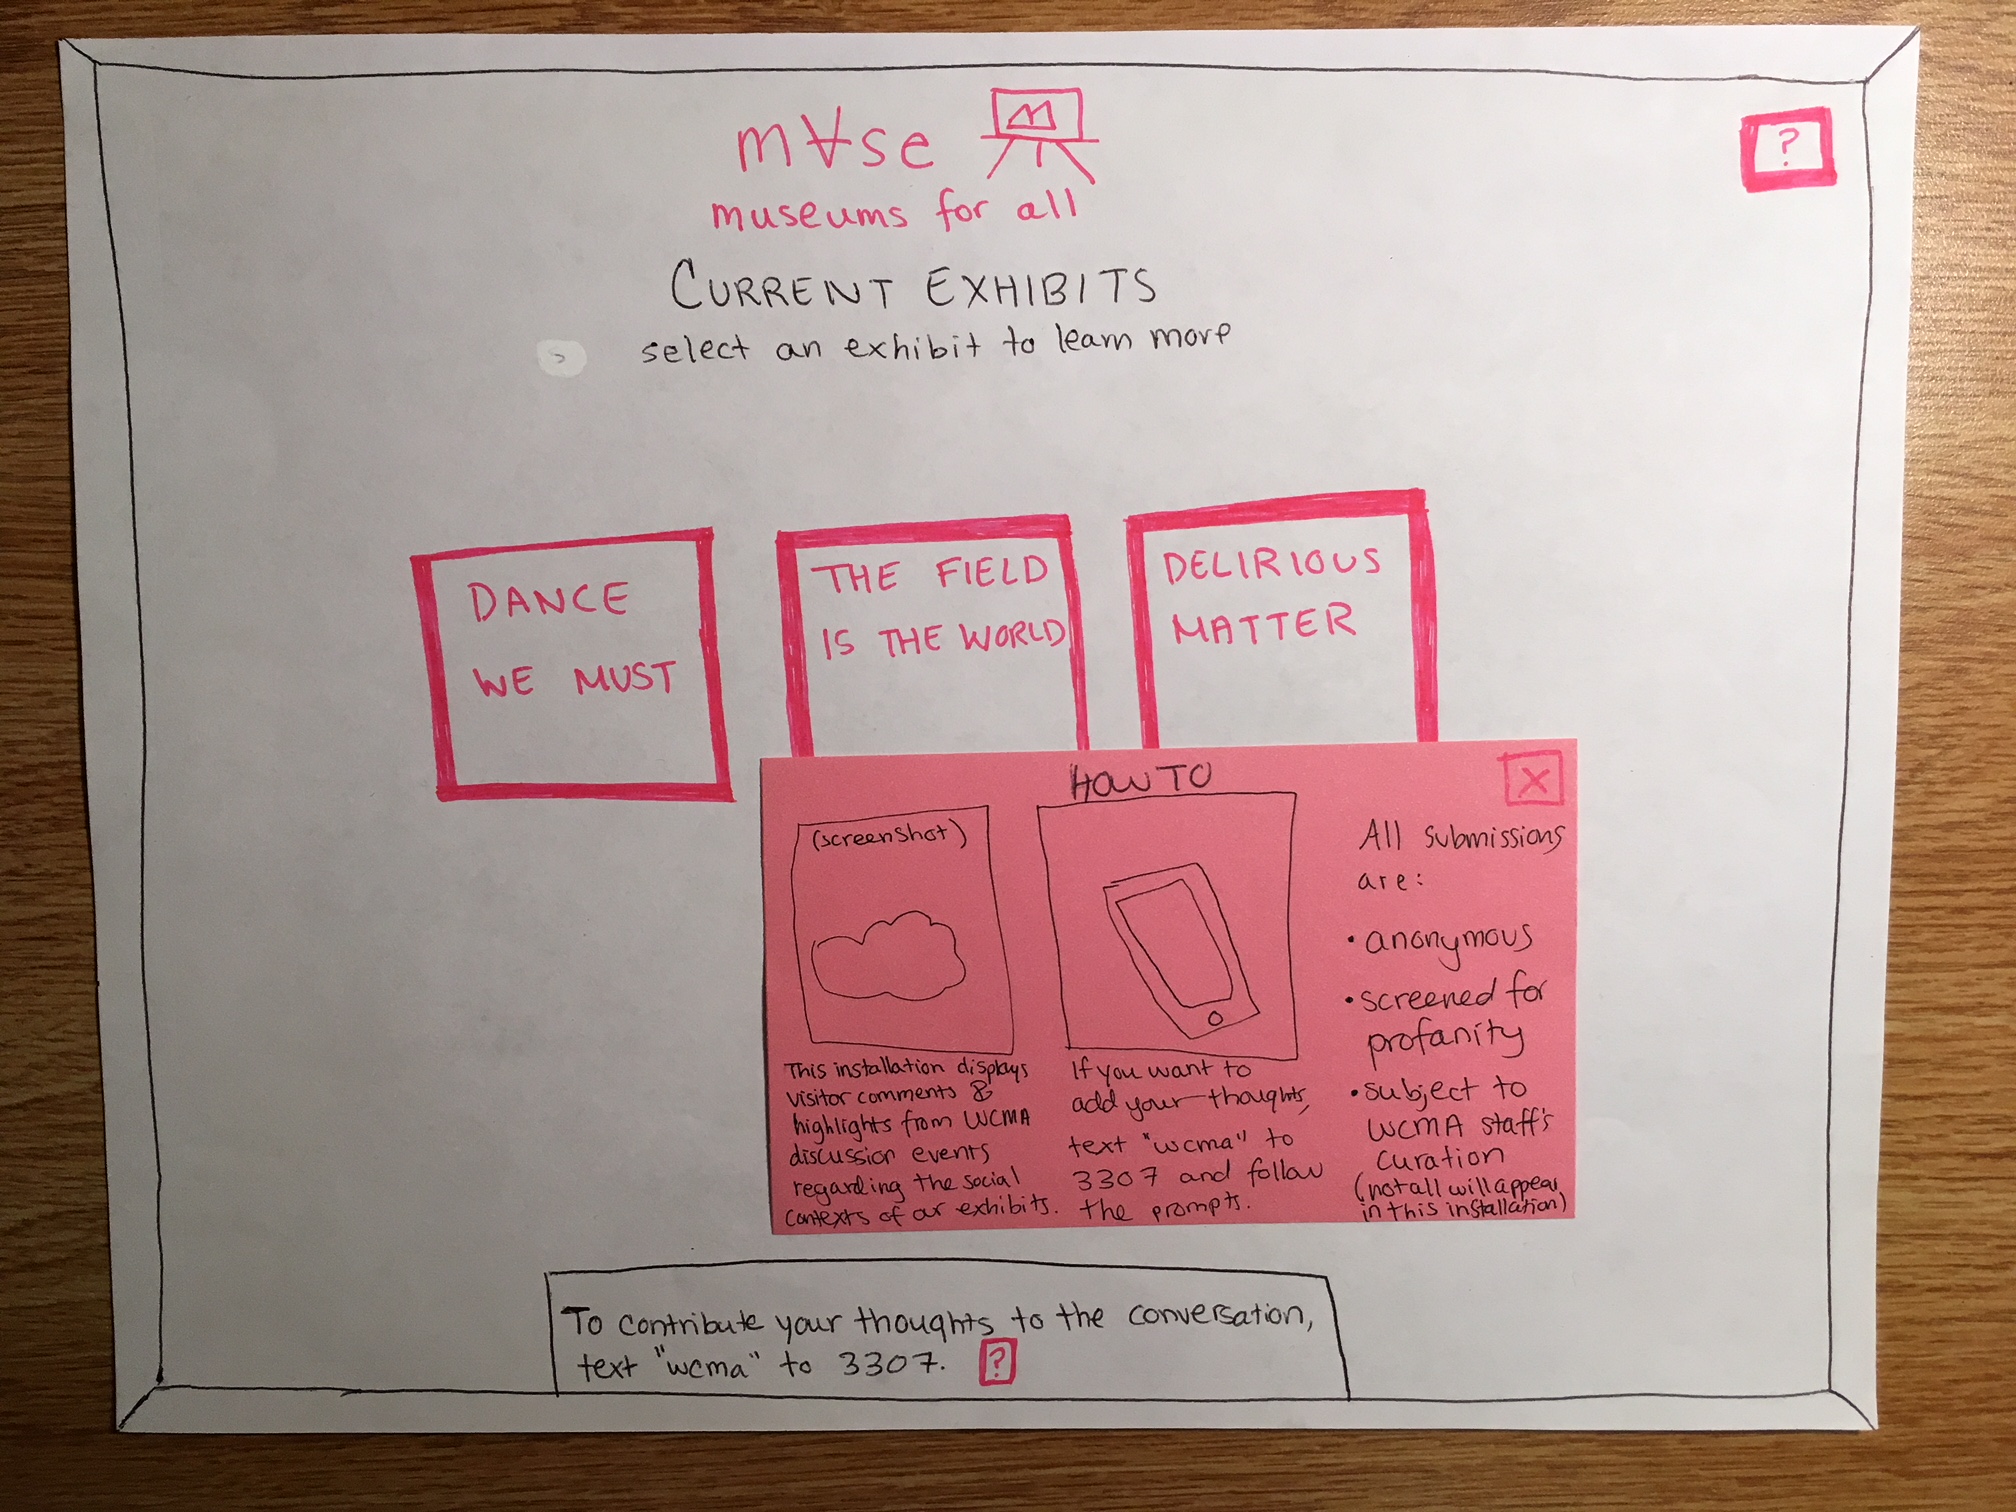 m∀se
M
museums for all
?
CURRENT EXHIBITS
select an exhibit to learn more
DANCE
WE MUST
THE FIELD
IS THE WORLD
DELIRIOUS
MATTER
HOW TO
X
(screenshot)
This installation displays
visitor comments &
highlights from WCMA
discussion events
regarding the social
contexts of our exhibits.
If you want to
add your thoughts,
text "wcma" to
3307 and follow
the prompts.
All submissions
are:
• anonymous
• screened for
profanity
• subject to
WCMA staff's
curation
(not all will appear
in this installation)
To contribute your thoughts to the conversation,
text "wcma" to 3307. ?